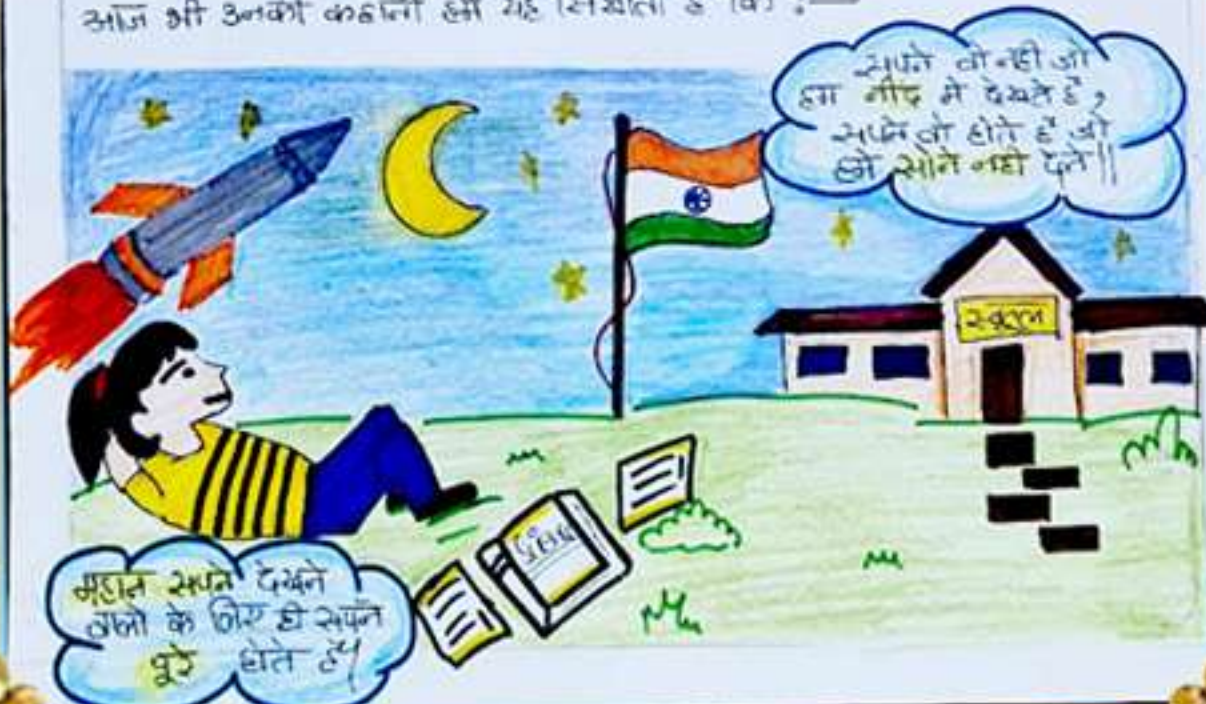 आज भी उनकी कहानी हमें यह सिखाती है कि :—
सपने वो नहीं जो
हम नींद में देखते है,
सपने वो होते हैं जो
हमे सोने नही देते||
स्कूल
महान सपने देखने
वालो के लिए ही सपने
पूरे होते हैं|